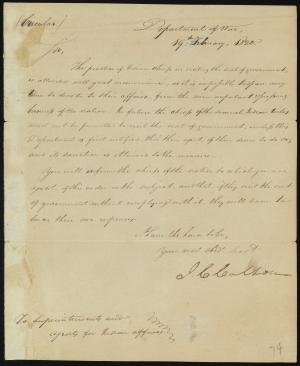 (Circular)
Department of War,
19th February, 1820.
Sir,
The practice of Indian chiefs in visiting the seat of government,
is attended with great inconvenience, and is
time to devote to their affairs, from the more important & pressing
business of the nation. In future the chiefs of the several Indian tribes
must not be permitted to visit the seat of government, unless this
Department is first notified that they
and its sanction is obtained to the measure.
You will inform the chiefs of the nation to which you are
agent, of this order on the subject, and that if they visit the seat
of government without complying with it, they will have to
bear their own expenses.
I have the honor to be,
Your most obt. servt.
J. C. Calhoun
To Superintendents and
agents for Indian affairs
74